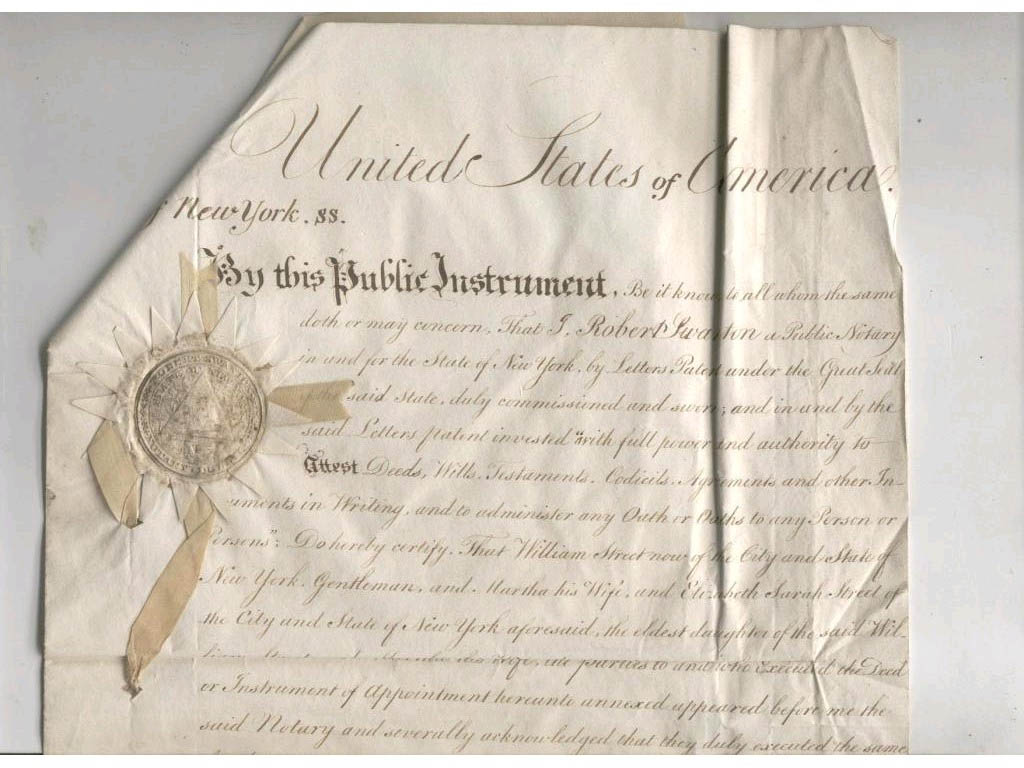 United States of America.
f New York. ss.
By this Public Instrument, Be it known to all whom the same
doth or may concern, That I, Robert Swanton a Public Notary
in and for the State of New York, by Letters Patent under the Great Seal
of the said State, duly commissioned and sworn; and in and by the
said Letters patent invested "with full power and authority to
Attest Deeds, Wills, Testaments, Codicils, Agreements and other In-
uments in Writing, and to administer any Oath or Oaths to any Person or
Persons": Do hereby certify, That William Street now of the City and State of
New York, Gentleman, and Martha his Wife, and Elizabeth Sarah Street of
the City and State of New York aforesaid, the eldest daughter of the said Wil-
his wife, are parties to and who executed the Deed
or Instrument of Appointment hereunto annexed appeared before me the
said Notary and severally acknowledged that they duly executed the same